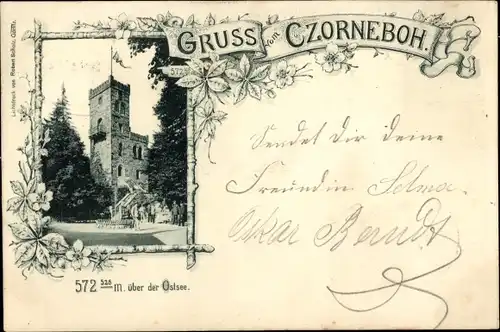 GRUSS vom CZORNEBOH.
Lichtdruck von Robert
572
Sendet Dir deine
Freundin Selma.
Oskar Berndt
572 m. über der Ostsee.